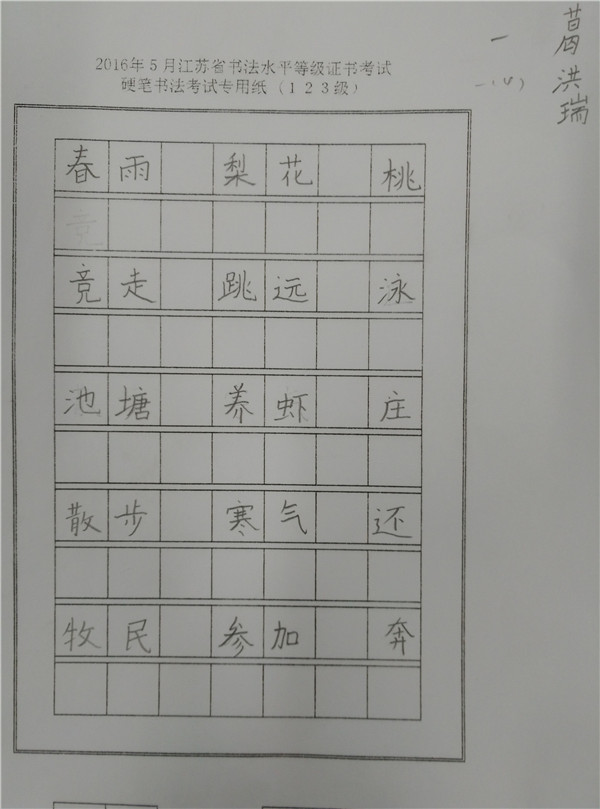 2016年5月江苏省书法水平等级证书考试
硬笔书法考试专用纸（123级）
一
一(4)
葛洪瑞
春雨 梨花 桃
竞
竞走 跳远 泳
池塘 养虾 庄
散步 寒气 还
牧民 参加 奔